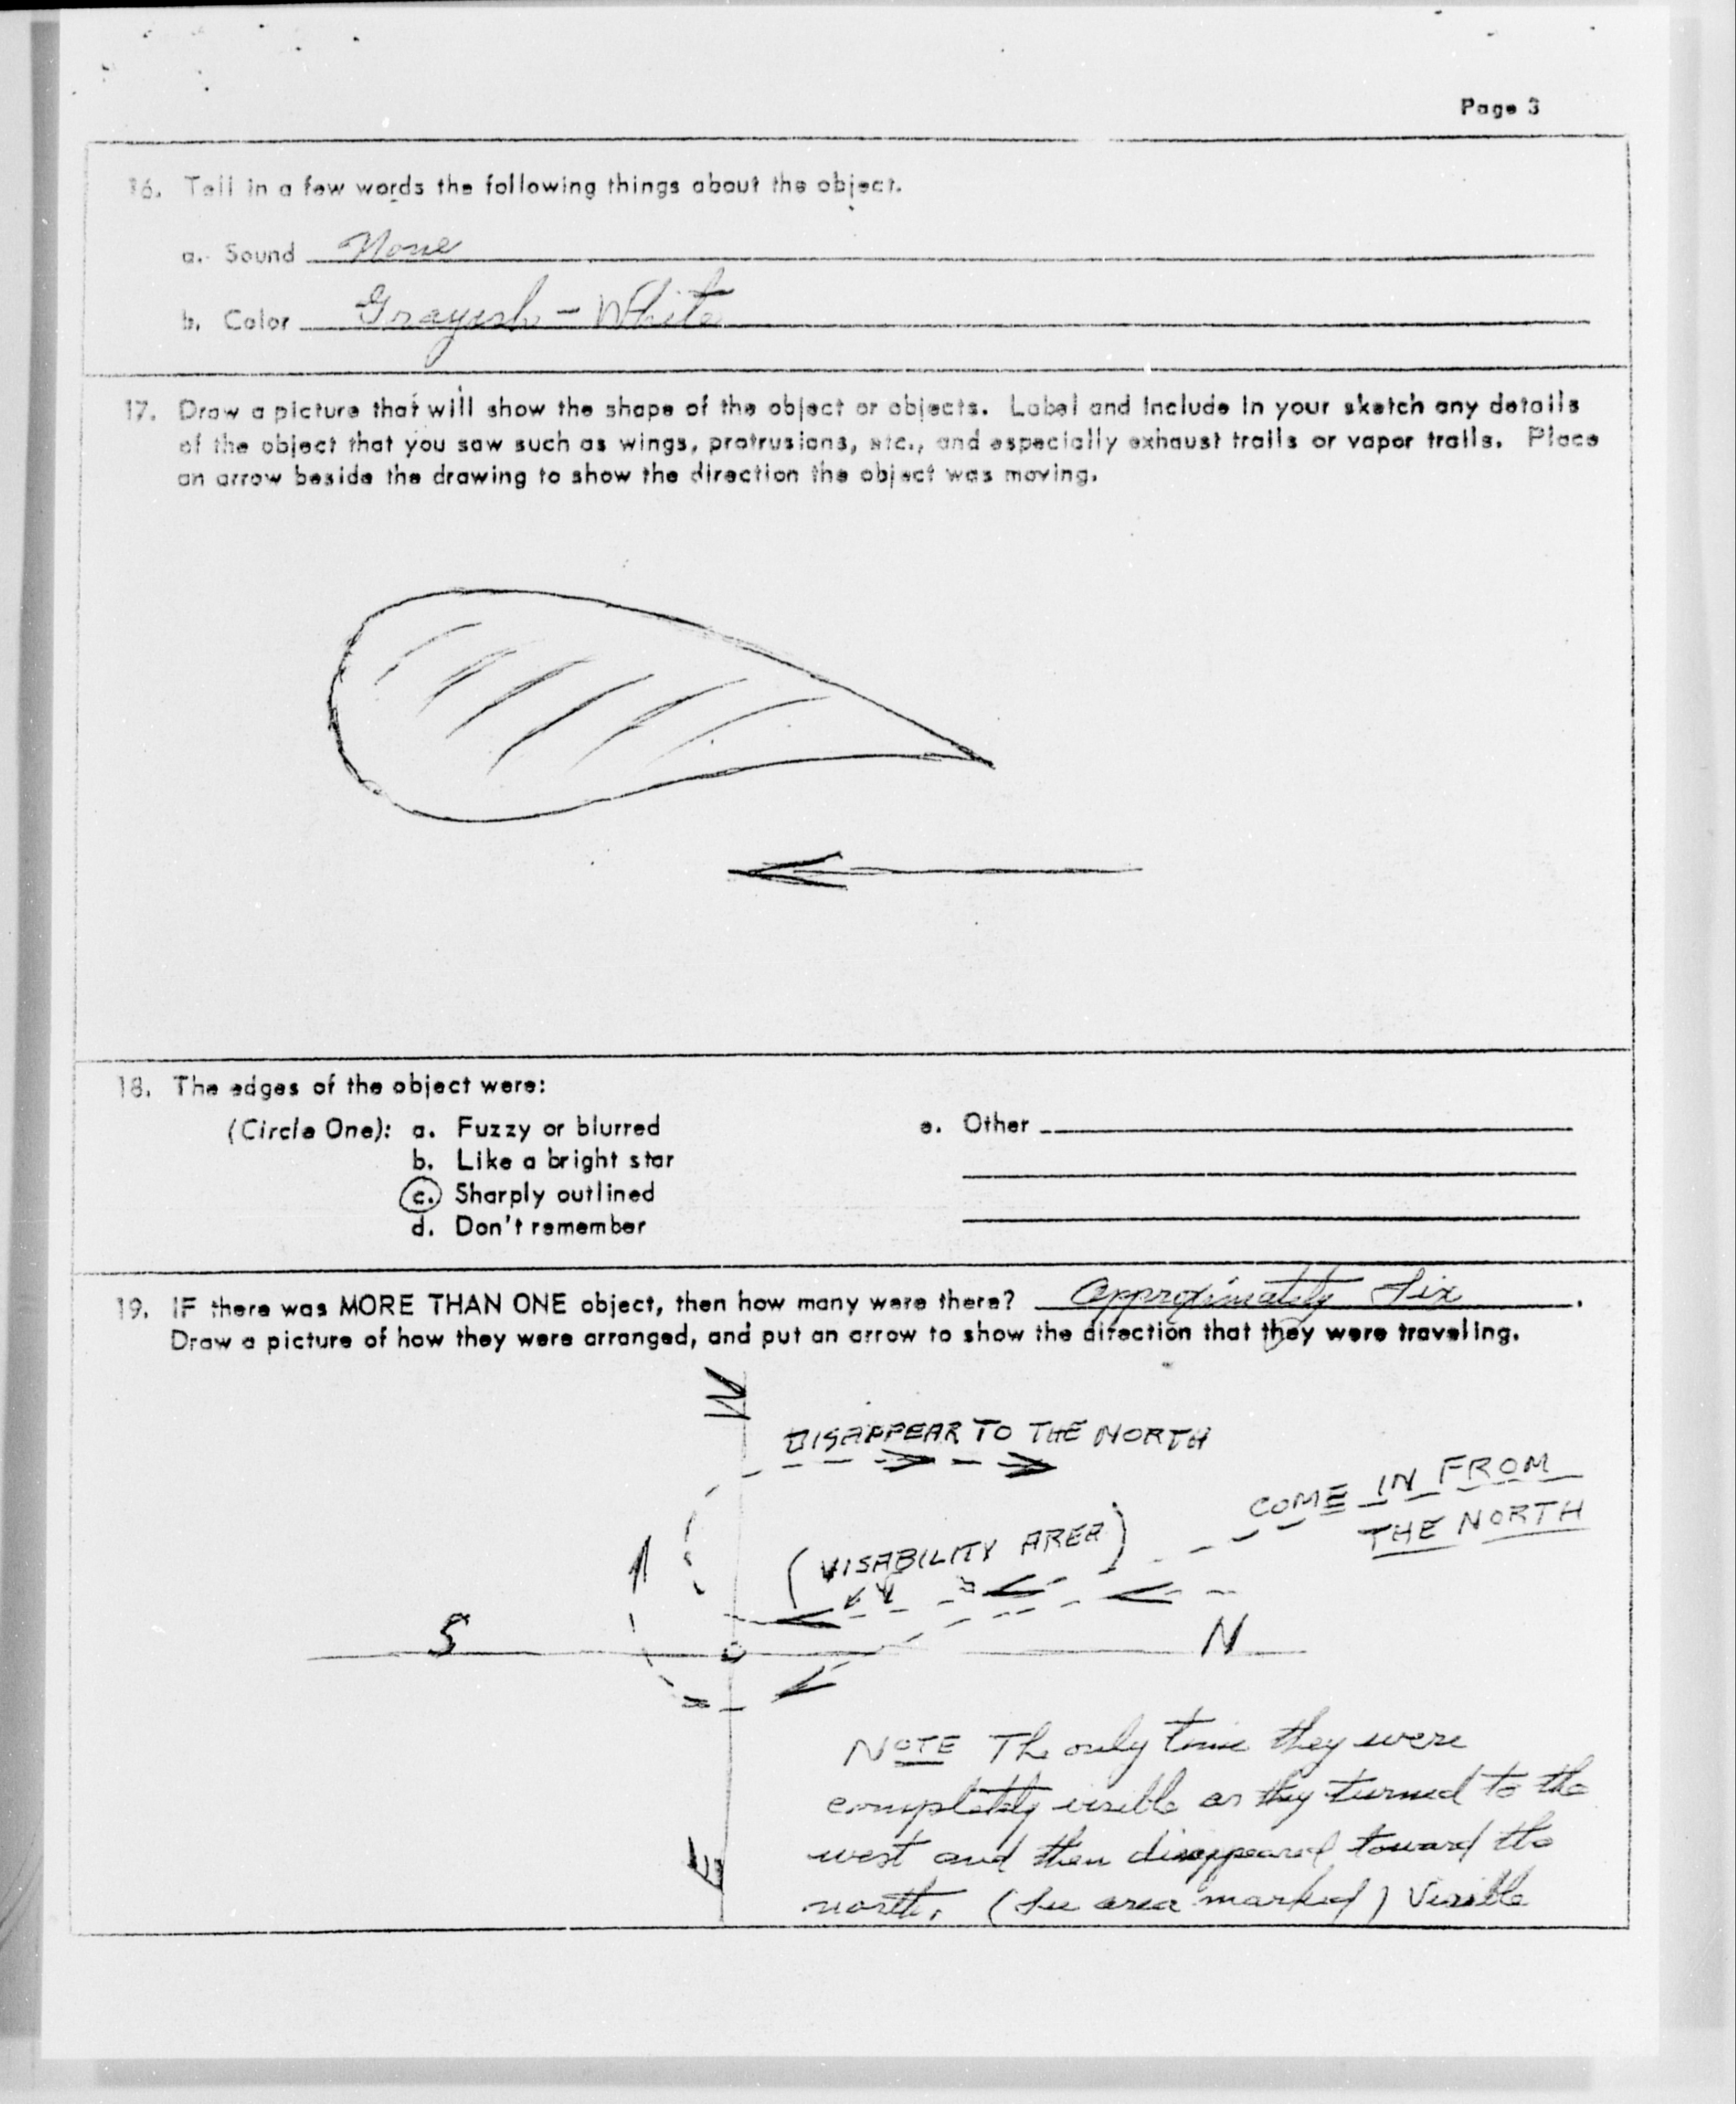 Page 3
16. Tell in a few words the following things about the object.
a. Sound None
b. Color Grayish - White
17. Draw a picture that will show the shape of the object or objects. Label and include in your sketch any details
of the object that you saw such as wings, protrusions, etc., and especially exhaust trails or vapor trails. Place
an arrow beside the drawing to show the direction the object was moving.
18. The edges of the object were:
(Circle One): a. Fuzzy or blurred
b. Like a bright star
c. Sharply outlined
d. Don't remember
e. Other
19. IF there was MORE THAN ONE object, then how many were there? Approximately Six.
Draw a picture of how they were arranged, and put an arrow to show the direction that they were traveling.
W
DISAPPEAR TO THE NORTH
COME IN FROM
THE NORTH
(VISABILITY AREA)
S
N
E
NOTE The only time they were
completely visible as they turned to the
west and then disappeared toward the
north. (See area marked) Visible